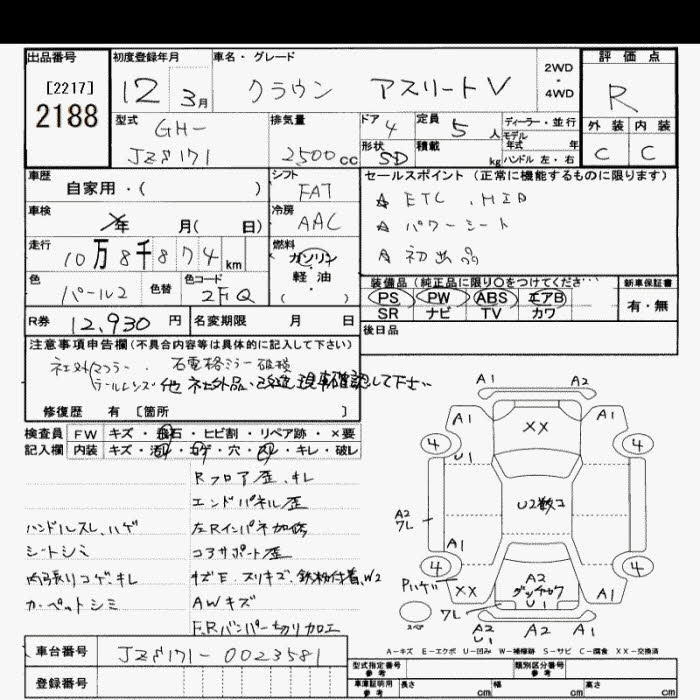 出品番号
[2217]
2188
初度登録年月
12 3月
車名・グレード
クラウン アスリートV
2WD
・
4WD
評価点
R
外装 内装
C C
型式
GH-
JZS171
排気量
2500cc
ドア
4
形状
SD
定員
5人
積載
kg
ディーラー・並行
モデル
年式 年
ハンドル 左・右
車歴
自家用・( )
シフト
FAT
セールスポイント (正常に機能するものに限ります)
☆ ETC , HID
☆ パワーシート
☆ 初出品
車検
年 月( 日)
冷房
AAC
走行
10万8千874km
燃料
ガソリン
・
軽油
( )
色
パール2
色替
色コード
2FQ
装備品(純正品に限り○をつけてくださ
PS PW ABS エアB
SR ナビ TV カワ
新車保証書
有・無
R券 12,930円
名変期限 月 日
後日品
注意事項申告欄(不具合内容等は具体的に記入して下さい)
社外マフラー . 右電格ミラー破損
テールレンズ 他 社外品、改造 現車確認して下さい
修復歴 有 [箇所 ]
検査員 FW キズ・飛石・ヒビ割・リペア跡・×要
記入欄 内装 キズ・汚れ・コゲ・穴・スレ・キレ・破レ
Rフロア歪、キレ
エンドパネル歪
ハンドルスレ、ハゲ
左Rインパネ加修
シートシミ
コアサポート歪
内張りコゲ、キレ
キズE・スリキズ、鉄粉付着、W2
カーペットシミ
AWキズ
F,Rバンパー切り加工
A1 A2
A1 XX A1
4 4
U1
U2数コ
A2
フレ
A1
4 4
Pハゲ
XX
A2
U1
A1
スペア
フレ
A2
U1
A2 A2
A-キズ E-エクボ U-凹み W-補修跡 S-サビ C-腐食 XX-交換済
車台番号 JZS171-0023581
登録番号
型式指定番号
参考
類別区分番号
参考
車庫証明用
参考
長さ cm 幅 cm 高さ cm